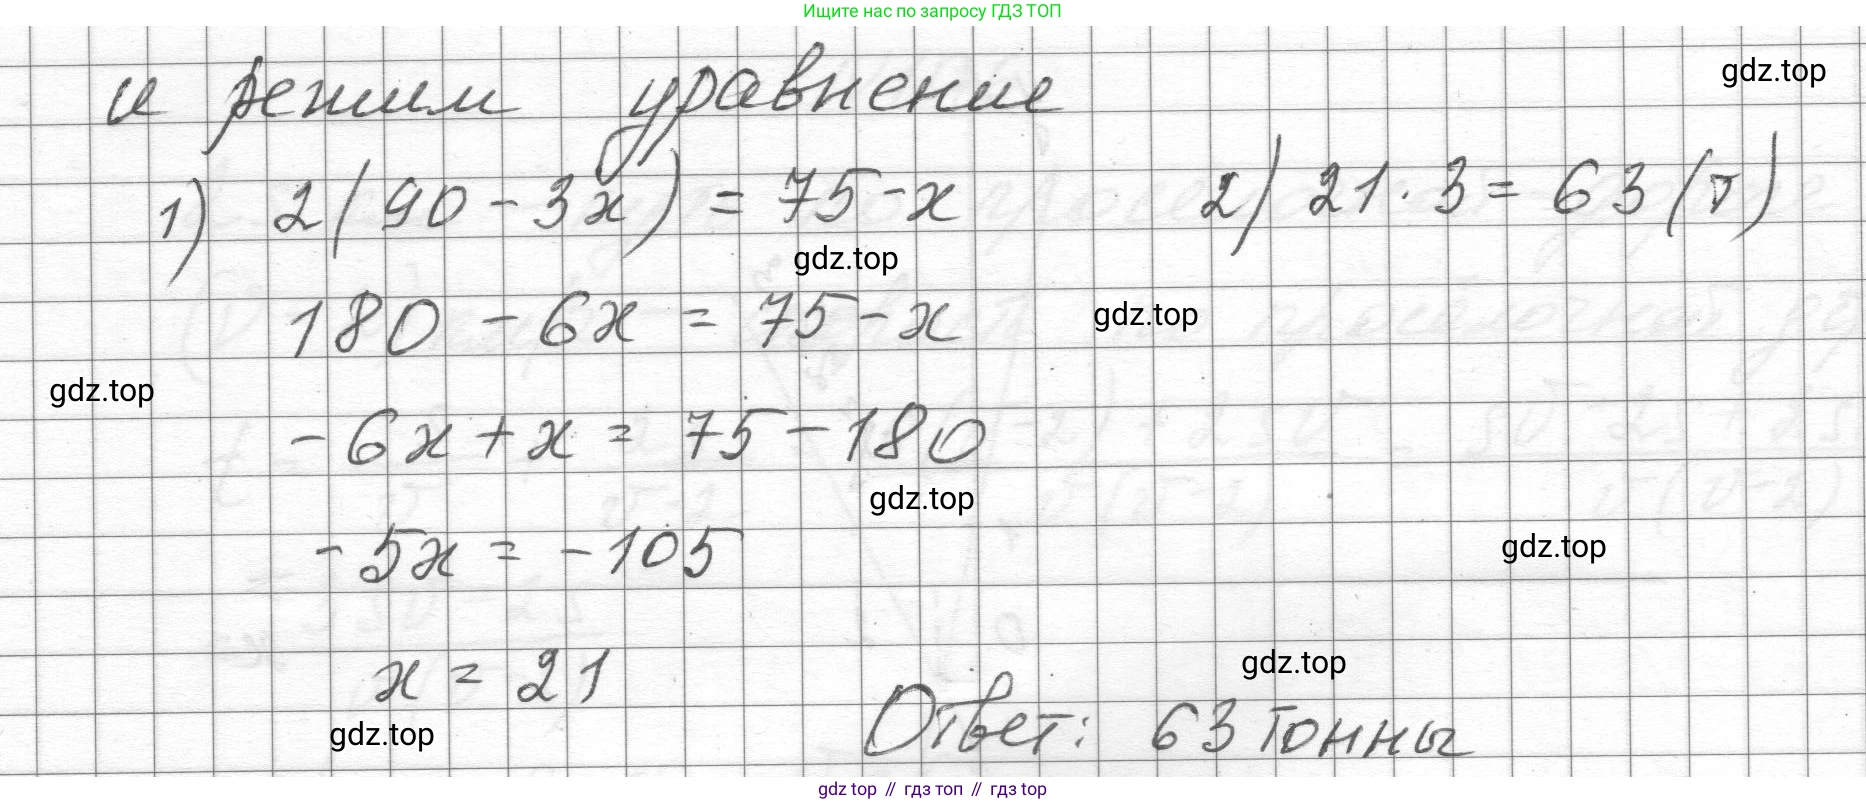 Ищите нас по запросу ГДЗ ТОП
и решим уравнение
gdz.top
1) 2(90-3x)=75-x
2) 21·3=63(т)
gdz.top
180-6x=75-x
gdz.top
gdz.top
-6x+x=75-180
gdz.top
-5x=-105
gdz.top
x=21
gdz.top
gdz.top
Ответ: 63 тонны
gdz top // гдз топ // гдз top